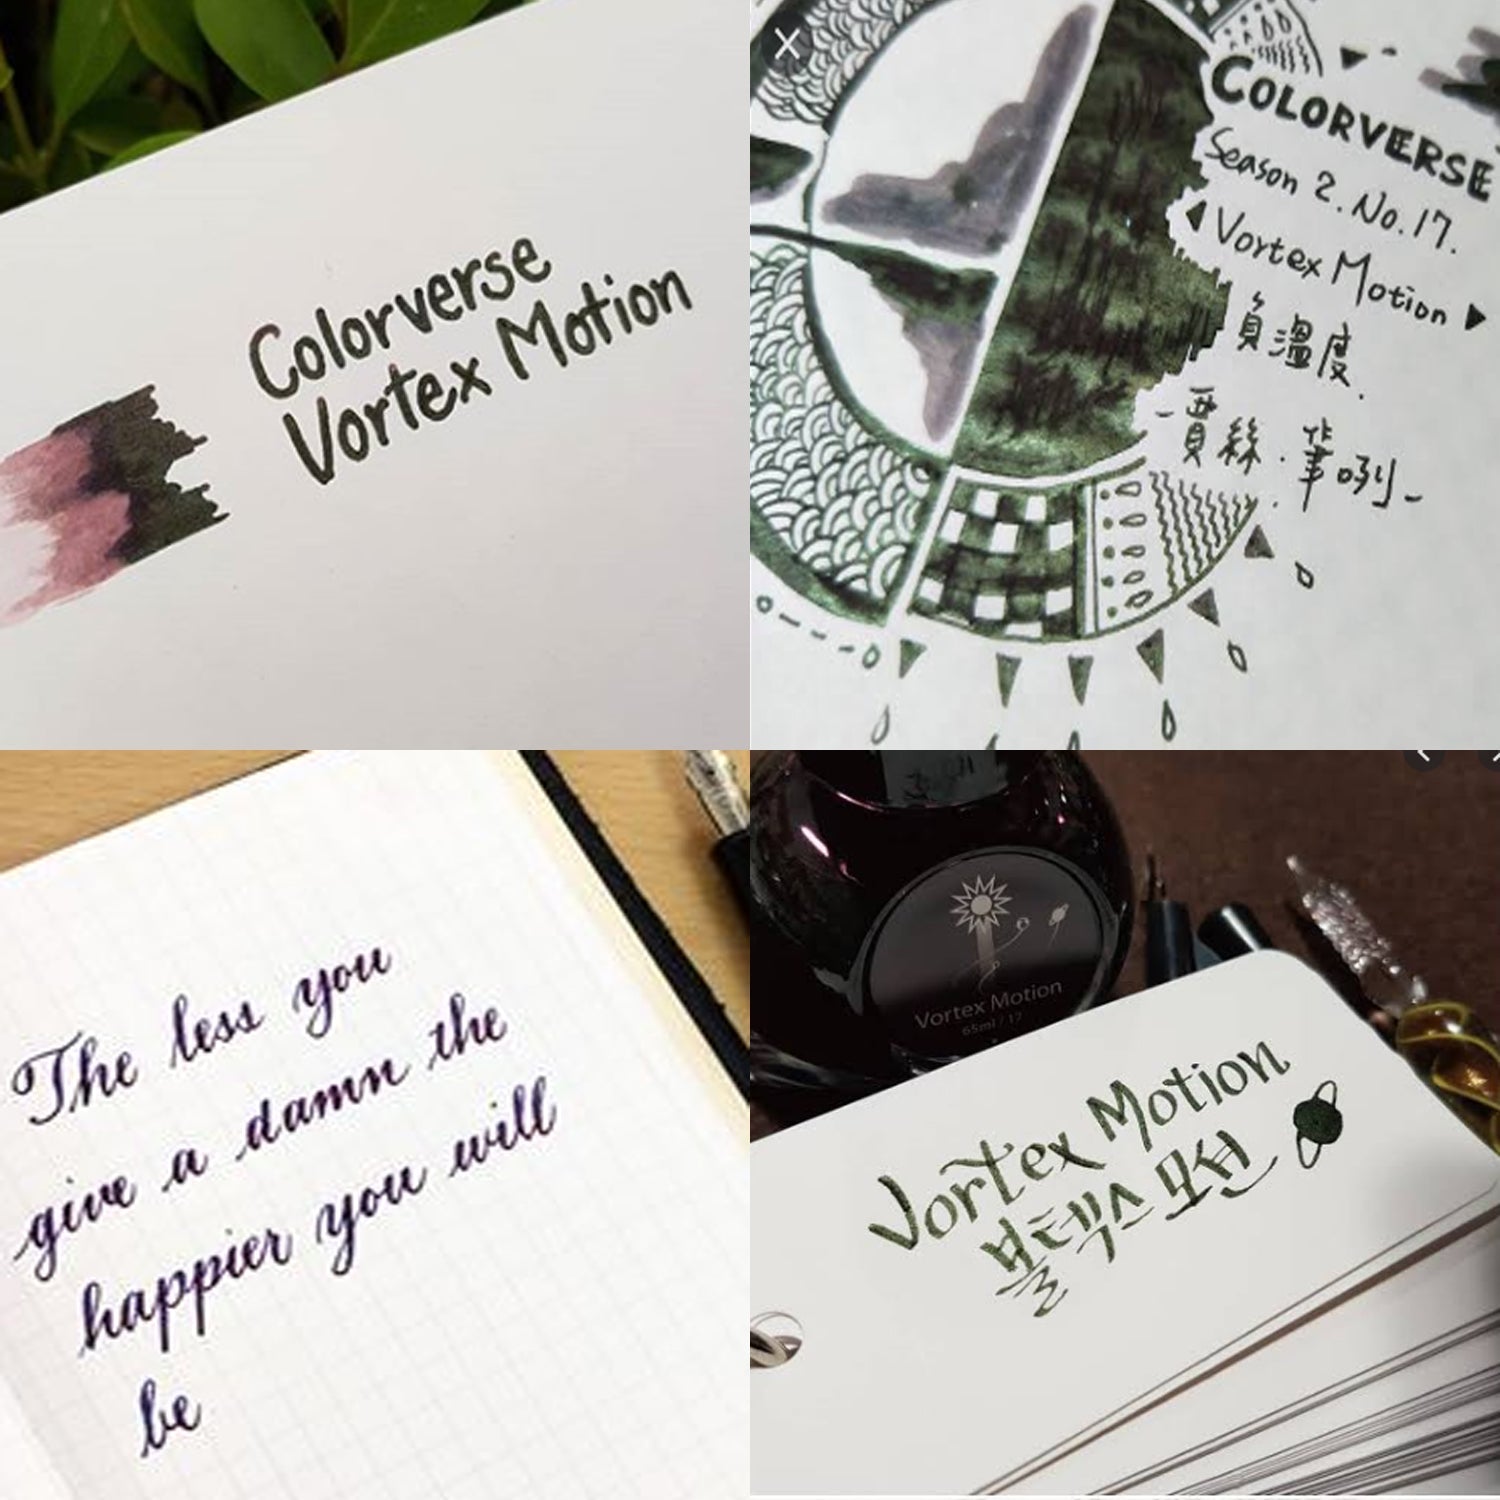 Colorverse
Vortex Motion
COLORVERSE
Season 2. No. 17.
Vortex Motion
負溫度.
-賈絲.筆咧-
The less you
give a damn the
happier you will
be
Vortex Motion
65ml / 17
Vortex Motion
볼텍스 모션